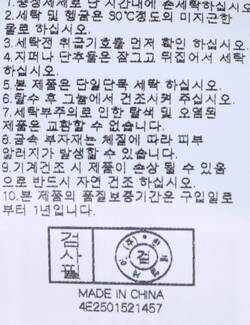 1.중성세제로 단 시간내에 손세탁하십시오
2.세탁 및 헹굼은 30℃정도의 미지근한
물로 하십시오.
3.세탁전 취급기호를 먼저 확인 하십시오.
4.지퍼나 단추물은 잠그고 뒤집어서 세탁
하십시오.
5.본 제품은 단일단독 세탁 하십시오.
6.탈수 후 그늘에서 건조시켜 주십시오.
7.세탁부주의로 인한 탈색 및 오염된
제품은 교환할 수 없습니다.
8.금속 부자재는 체질에 따라 피부
알러지가 발생할 수 있습니다.
9.기계건조 시 제품이 손상 될 수 있음
으로 반드시 자연 건조 하십시오.
10.본 제품의 품질보증기간은 구입일로
부터 1년입니다.
검사필
검
MADE IN CHINA
4E2501521457